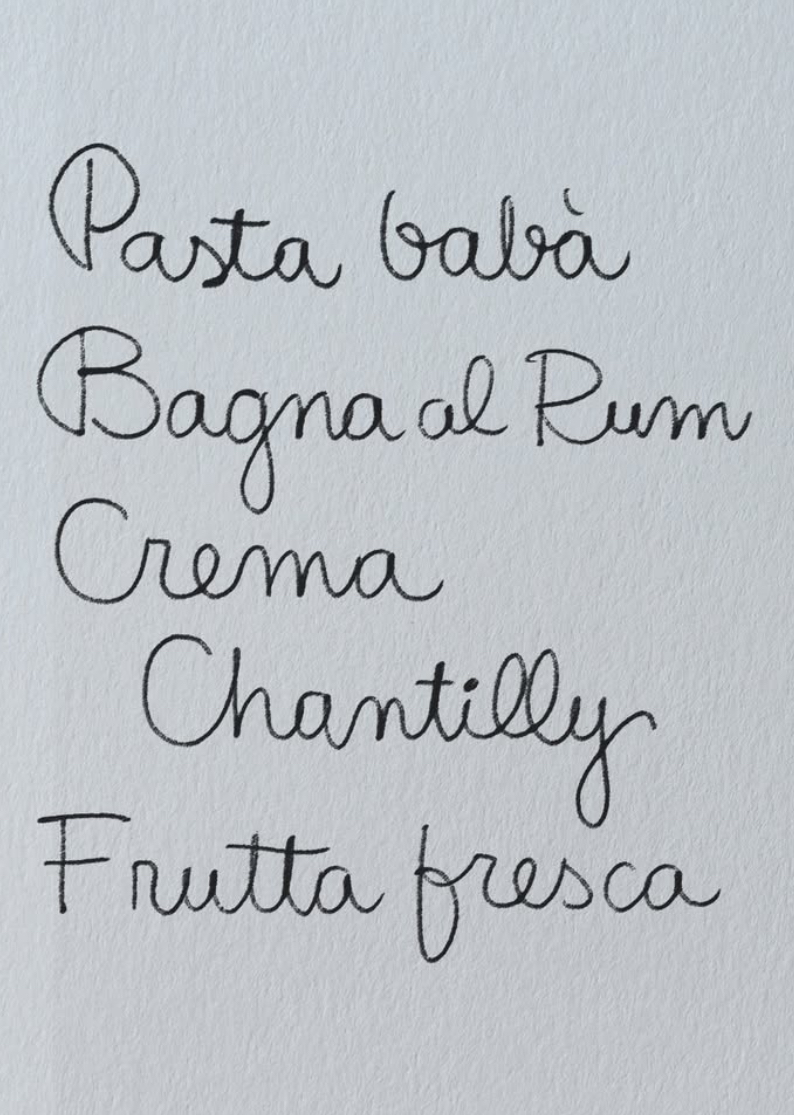 Pasta babà
Bagna al Rum
Crema
Chantilly
Frutta fresca